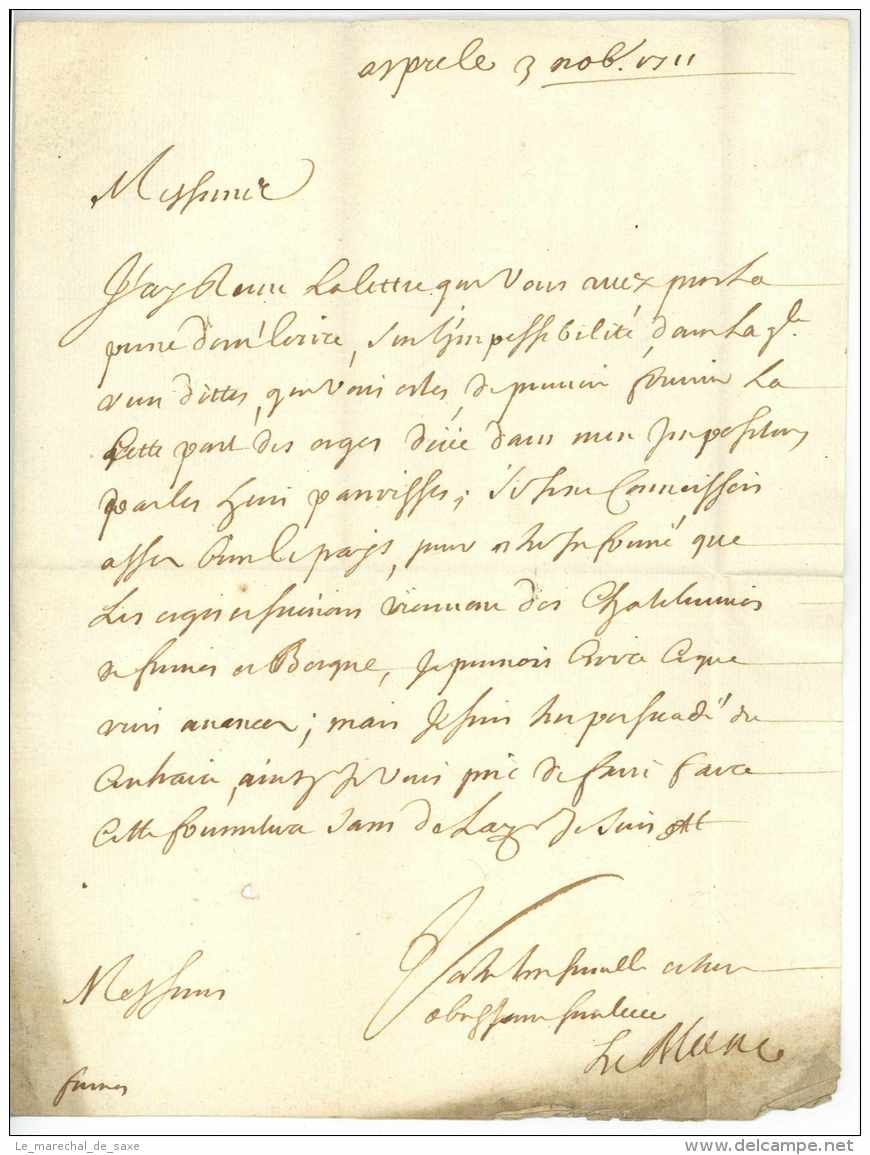 a ypre le 3 nobr. 1711
Messieurs
J'ay Receu La lettre que Vous avez pris La
peine de m'Ecrire, sur L'Impossibilité, dans La qle.
vous dittes, que Vous estes de pouvoir fournir La
cette part des orges deüe dans mon Imposition
par les huit parroisses; si Je ne Connoissois
assez bien le pays, pour estre Informé que
Les orges et soucrions viennent des Chatelenies
de furnes et Bergue, Je pourrois Croire Ce que
vous avancez; mais Je suis tres persuadé du
Contraire, ainsy Je Vous prie de faire faire
Cette fourniture sans delay. Je suis
Messieurs
Votre tres humble et tres
obeissant serviteur
Le Blanc
furnes
Le_marechal_de_saxe
www.delcampe.net